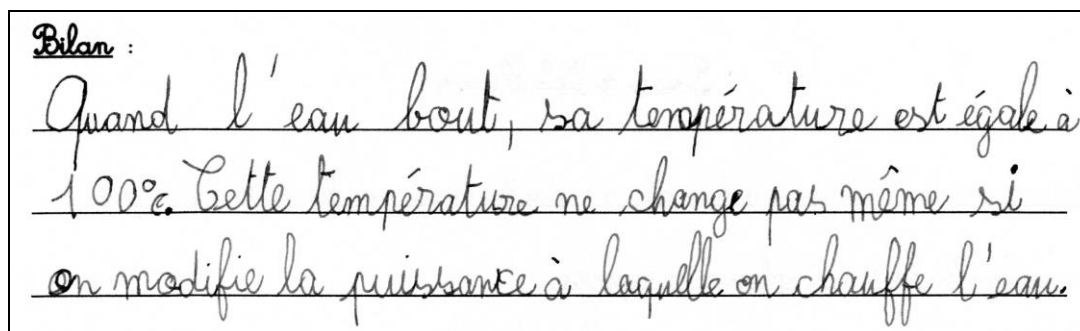 Bilan :
Quand l'eau bout, sa température est égale à
100°c. Cette température ne change pas même si
on modifie la puissance à laquelle on chauffe l'eau.